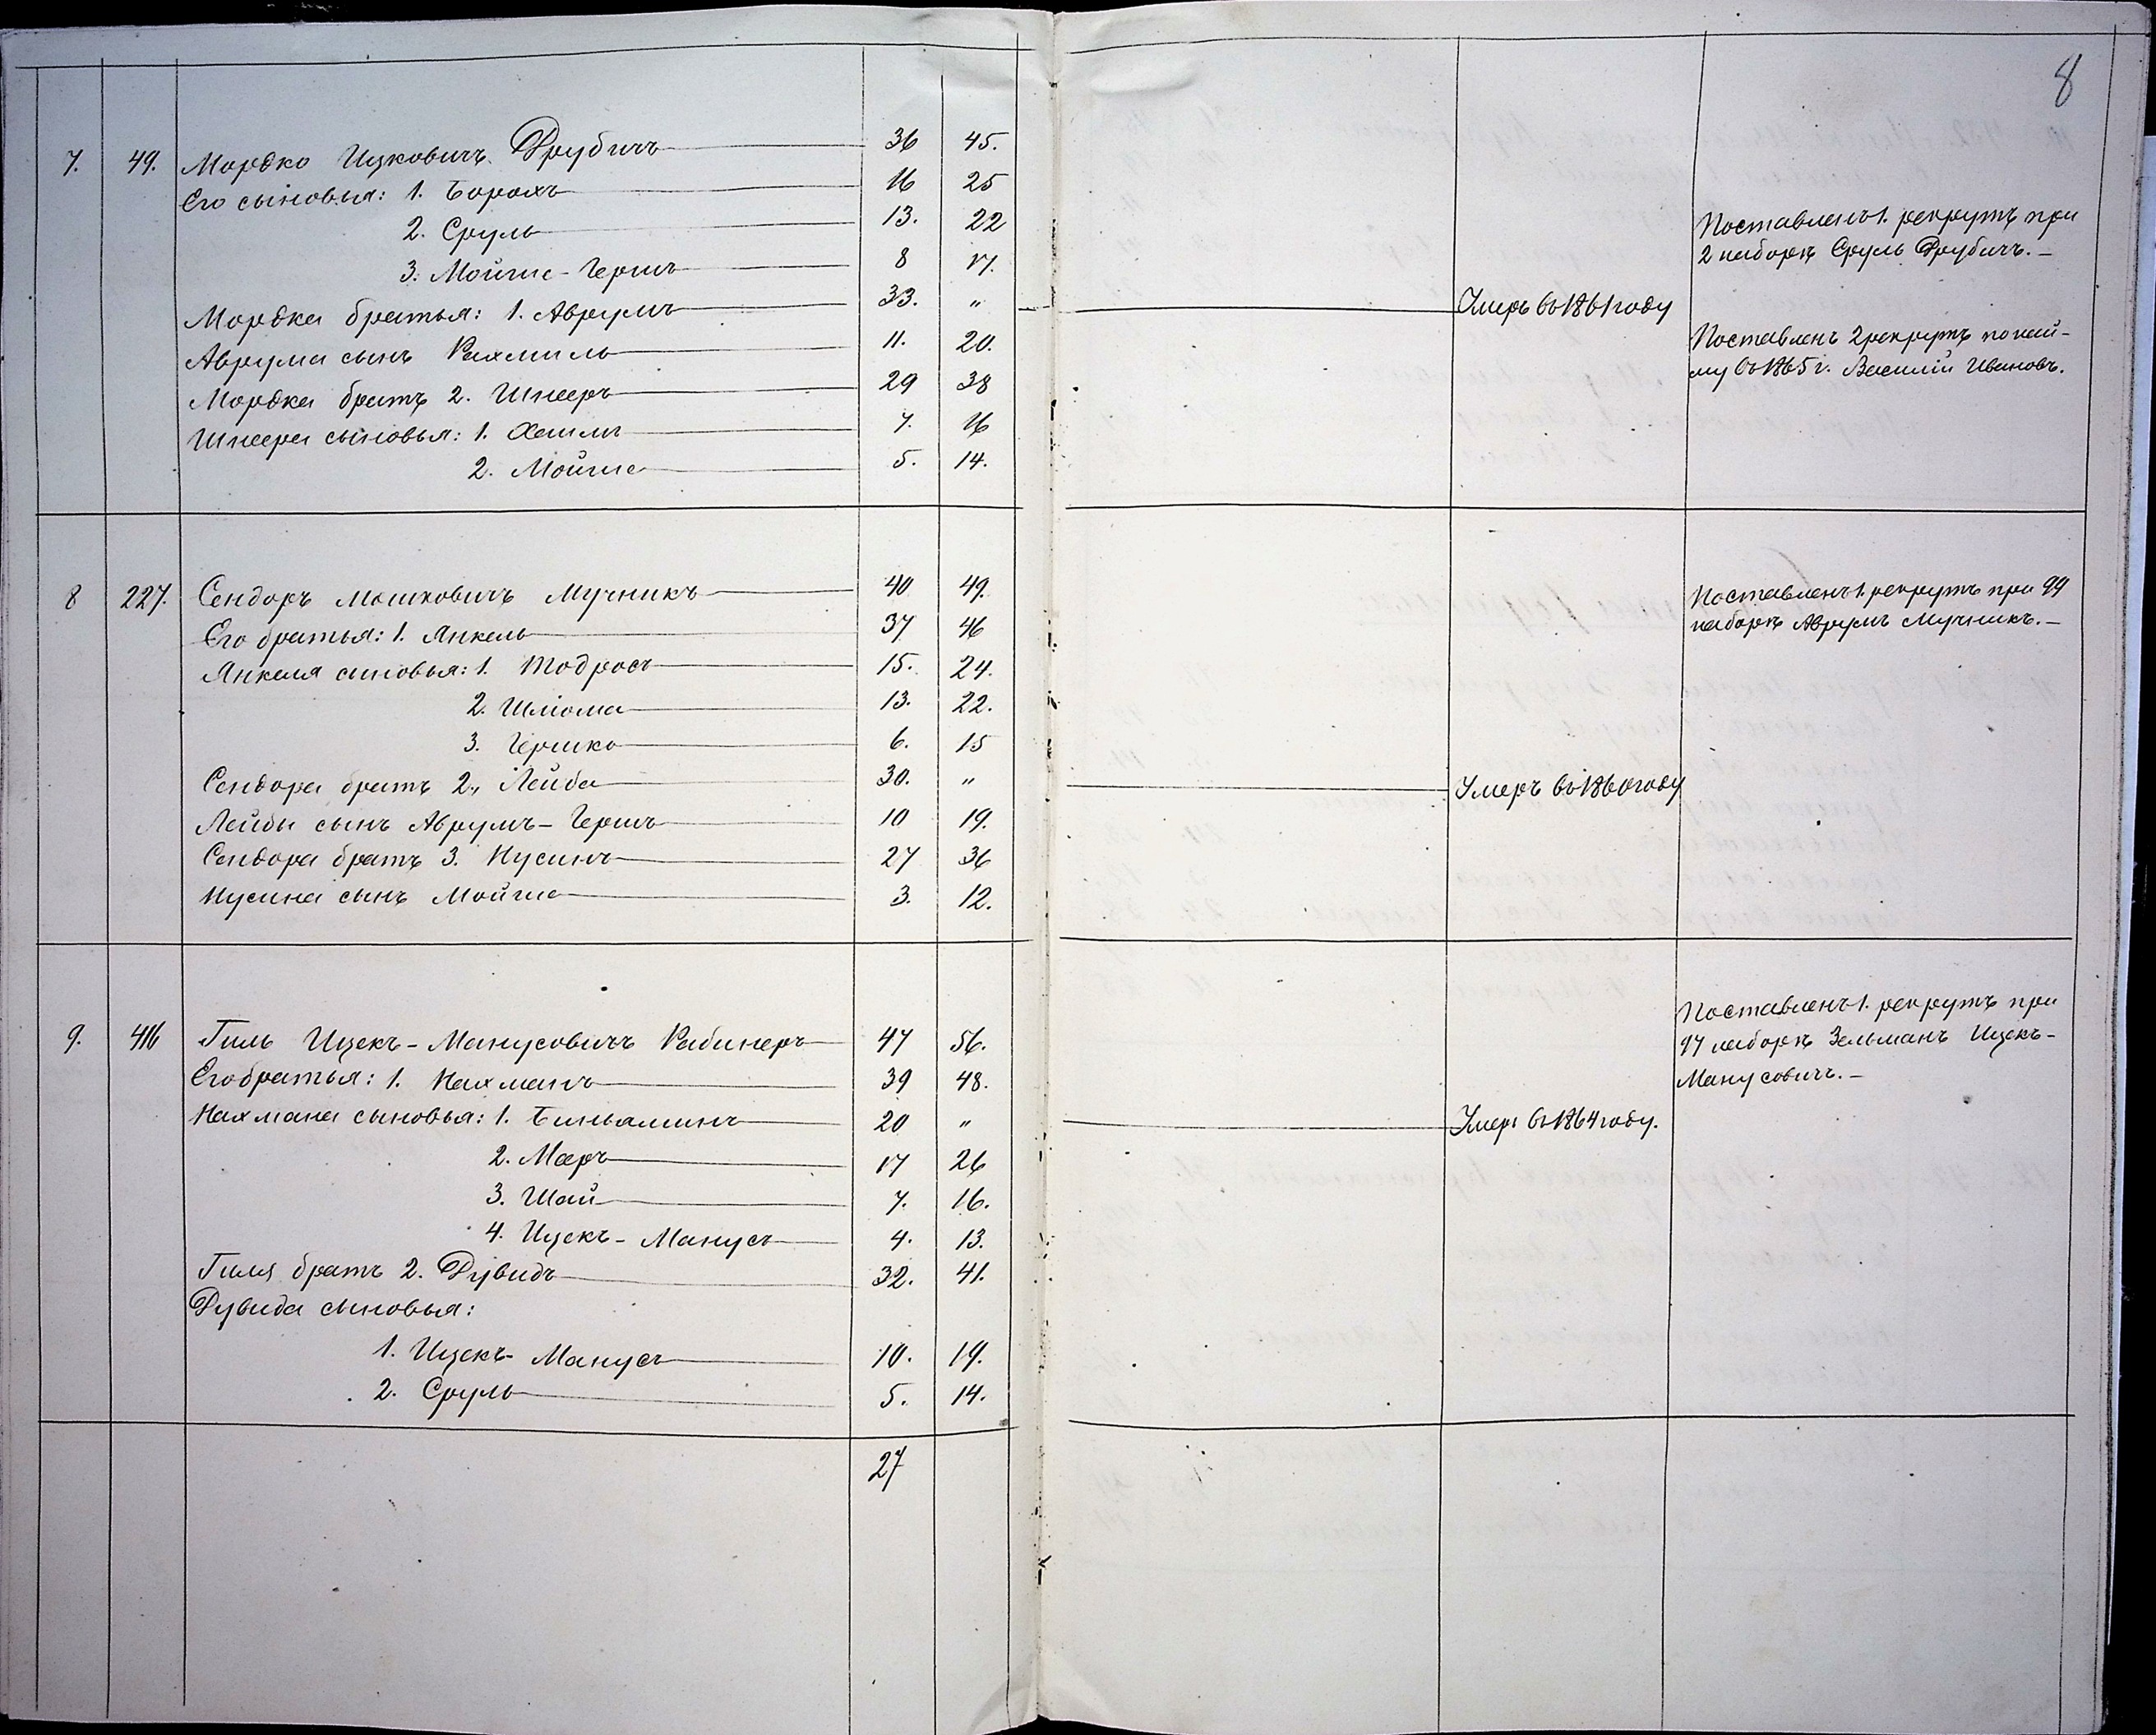 8
7. 49. Мордко Ицковичъ Друбичъ 36 45.
Его сыновья: 1. Борохъ 16 25
2. Сруль 13. 22
3. Мойше-Гершъ 8 17.
Мордка братья: 1. Аврумъ 33. "
Аврума сынъ Рахмиль 11. 20.
Мордка братъ 2. Шнееръ 29 38
Шнеера сыновья: 1. Хаимъ 7. 16
2. Мойше 5. 14.
Умеръ въ 1861 году
Поставленъ 1. рекрутъ при
2 наборѣ Сруль Друбичъ.-
Поставленъ 2 рекрутъ по най-
му въ 1865 г. Василій Ивановъ.
8 227. Сендоръ Мошковичъ Мучникъ 40 49.
Его братья: 1. Янкель 37 46
Янкеля сыновья: 1. Тодросъ 15. 24.
2. Шліома 13. 22.
3. Гершко 6. 15
Сендора братъ 2., Лейба 30. "
Лейбы сынъ Аврумъ-Гершъ 10 19.
Сендора братъ 3. Нусинъ 27 36
Нусина сынъ Мойше 3. 12.
Умеръ въ 1860 году
Поставленъ 1. рекрутъ при 99
наборѣ Аврумъ Мучникъ.-
9. 416 Гиль Ицекъ-Манусовичъ Рабинеръ 47 56.
Его братья: 1. Нахманъ 39 48.
Нахмана сыновья: 1. Биньяминъ 20 "
2. Мееръ 17 26
3. Шай 7. 16.
4. Ицекъ-Манусъ 4. 13.
Гиля братъ 2. Дувидъ 32. 41.
Дувида сыновья:
1. Ицекъ-Манусъ 10. 19.
2. Сруль 5. 14.
27
Умеръ въ 1864 году.
Поставленъ 1. рекрутъ при
97 наборѣ Зельманъ Ицекъ-
Манусовичъ.-